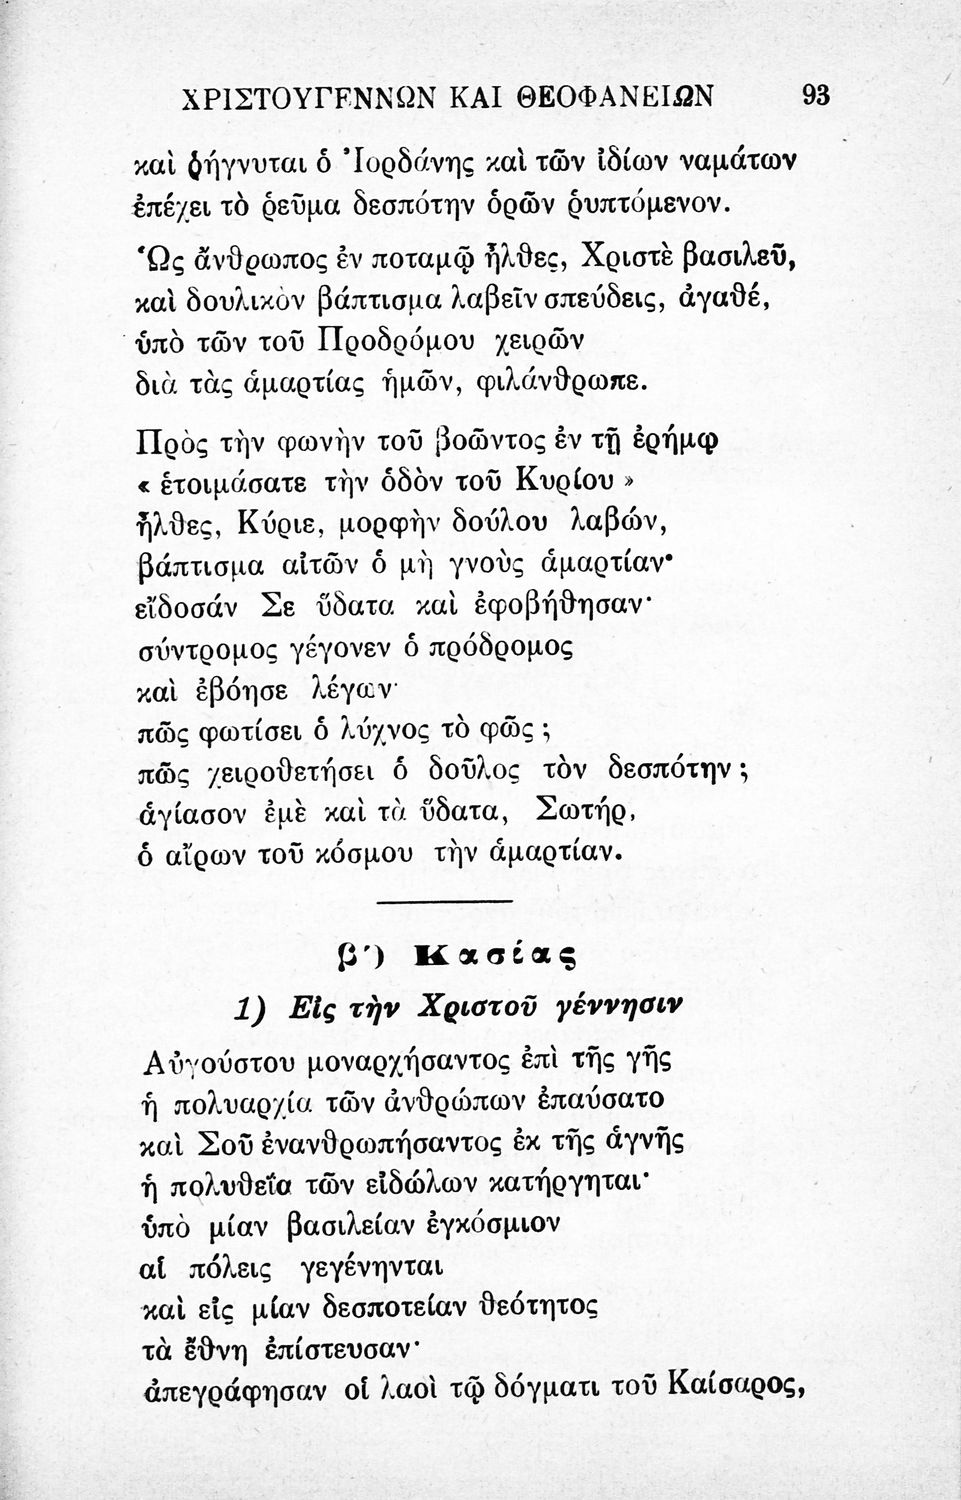 ΧΡΙΣΤΟΥΓΕΝΝΩΝ ΚΑΙ ΘΕΟΦΑΝΕΙΩΝ 93
καὶ ῥήγνυται ὁ Ἰορδάνης καὶ τῶν ἰδίων ναμάτων
ἐπέχει τὸ ῥεῦμα δεσπότην ὁρῶν ῥυπτόμενον.
Ὡς ἄνθρωπος ἐν ποταμῷ ἦλθες, Χριστὲ βασιλεῦ,
καὶ δουλικὸν βάπτισμα λαβεῖν σπεύδεις, ἀγαθέ,
ὑπὸ τῶν τοῦ Προδρόμου χειρῶν
διὰ τὰς ἁμαρτίας ἡμῶν, φιλάνθρωπε.
Πρὸς τὴν φωνὴν τοῦ βοῶντος ἐν τῇ ἐρήμῳ
« ἑτοιμάσατε τὴν ὁδὸν τοῦ Κυρίου »
ἦλθες, Κύριε, μορφὴν δούλου λαβών,
βάπτισμα αἰτῶν ὁ μὴ γνοὺς ἁμαρτίαν·
εἴδοσάν Σε ὕδατα καὶ ἐφοβήθησαν·
σύντρομος γέγονεν ὁ πρόδρομος
καὶ ἐβόησε λέγων·
πῶς φωτίσει ὁ λύχνος τὸ φῶς ;
πῶς χειροθετήσει ὁ δοῦλος τὸν δεσπότην ;
ἁγίασον ἐμὲ καὶ τὰ ὕδατα, Σωτήρ,
ὁ αἴρων τοῦ κόσμου τὴν ἁμαρτίαν.
β΄) Κασίας
1) Εἰς τὴν Χριστοῦ γέννησιν
Αὐγούστου μοναρχήσαντος ἐπὶ τῆς γῆς
ἡ πολυαρχία τῶν ἀνθρώπων ἐπαύσατο
καὶ Σοῦ ἐνανθρωπήσαντος ἐκ τῆς ἁγνῆς
ἡ πολυθεΐα τῶν εἰδώλων κατήργηται·
ὑπὸ μίαν βασιλείαν ἐγκόσμιον
αἱ πόλεις γεγένηνται
καὶ εἰς μίαν δεσποτείαν θεότητος
τὰ ἔθνη ἐπίστευσαν·
ἀπεγράφησαν οἱ λαοὶ τῷ δόγματι τοῦ Καίσαρος,